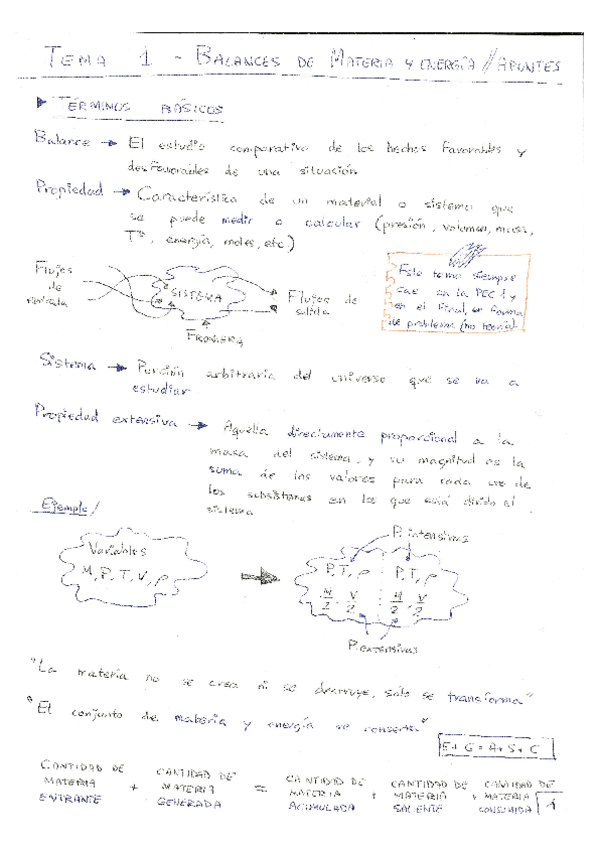 TEMA 1 - BALANCES DE MATERIA Y ENERGÍA // APUNTES
TÉRMINOS BÁSICOS
Balance → El estudio comparativo de los hechos favorables y
desfavorables de una situación
Propiedad → Característica de un material o sistema que
se puede medir o calcular (presión, volumen, masa,
Tª, energía, moles, etc.)
Flujos
de
entrada
SISTEMA
FRONTERA
Flujos de
salida
Este tema siempre
cae en la PEC 1 y
en el final, en forma
de problema (no teoría)
Sistema → Porción arbitraria del universo que se va a
estudiar
Propiedad extensiva → Aquella directamente proporcional a la
masa del sistema, y su magnitud es la
suma de los valores para cada uno de
los subsistemas en los que está divido el
sistema
Ejemplo/
Variables
M, P, T, V, ρ
P. intensivas
P, T, ρ P, T, ρ
M/2, V/2 M/2, V/2
P. extensivas
"La materia no se crea ni se destruye, sólo se transforma"
"El conjunto de materia y energía se conserva"
E + G = A + S + C
CANTIDAD DE MATERIA ENTRANTE + CANTIDAD DE MATERIA GENERADA = CANTIDAD DE MATERIA ACUMULADA + CANTIDAD DE MATERIA SALIENTE + CANTIDAD DE MATERIA CONSUMIDA
1